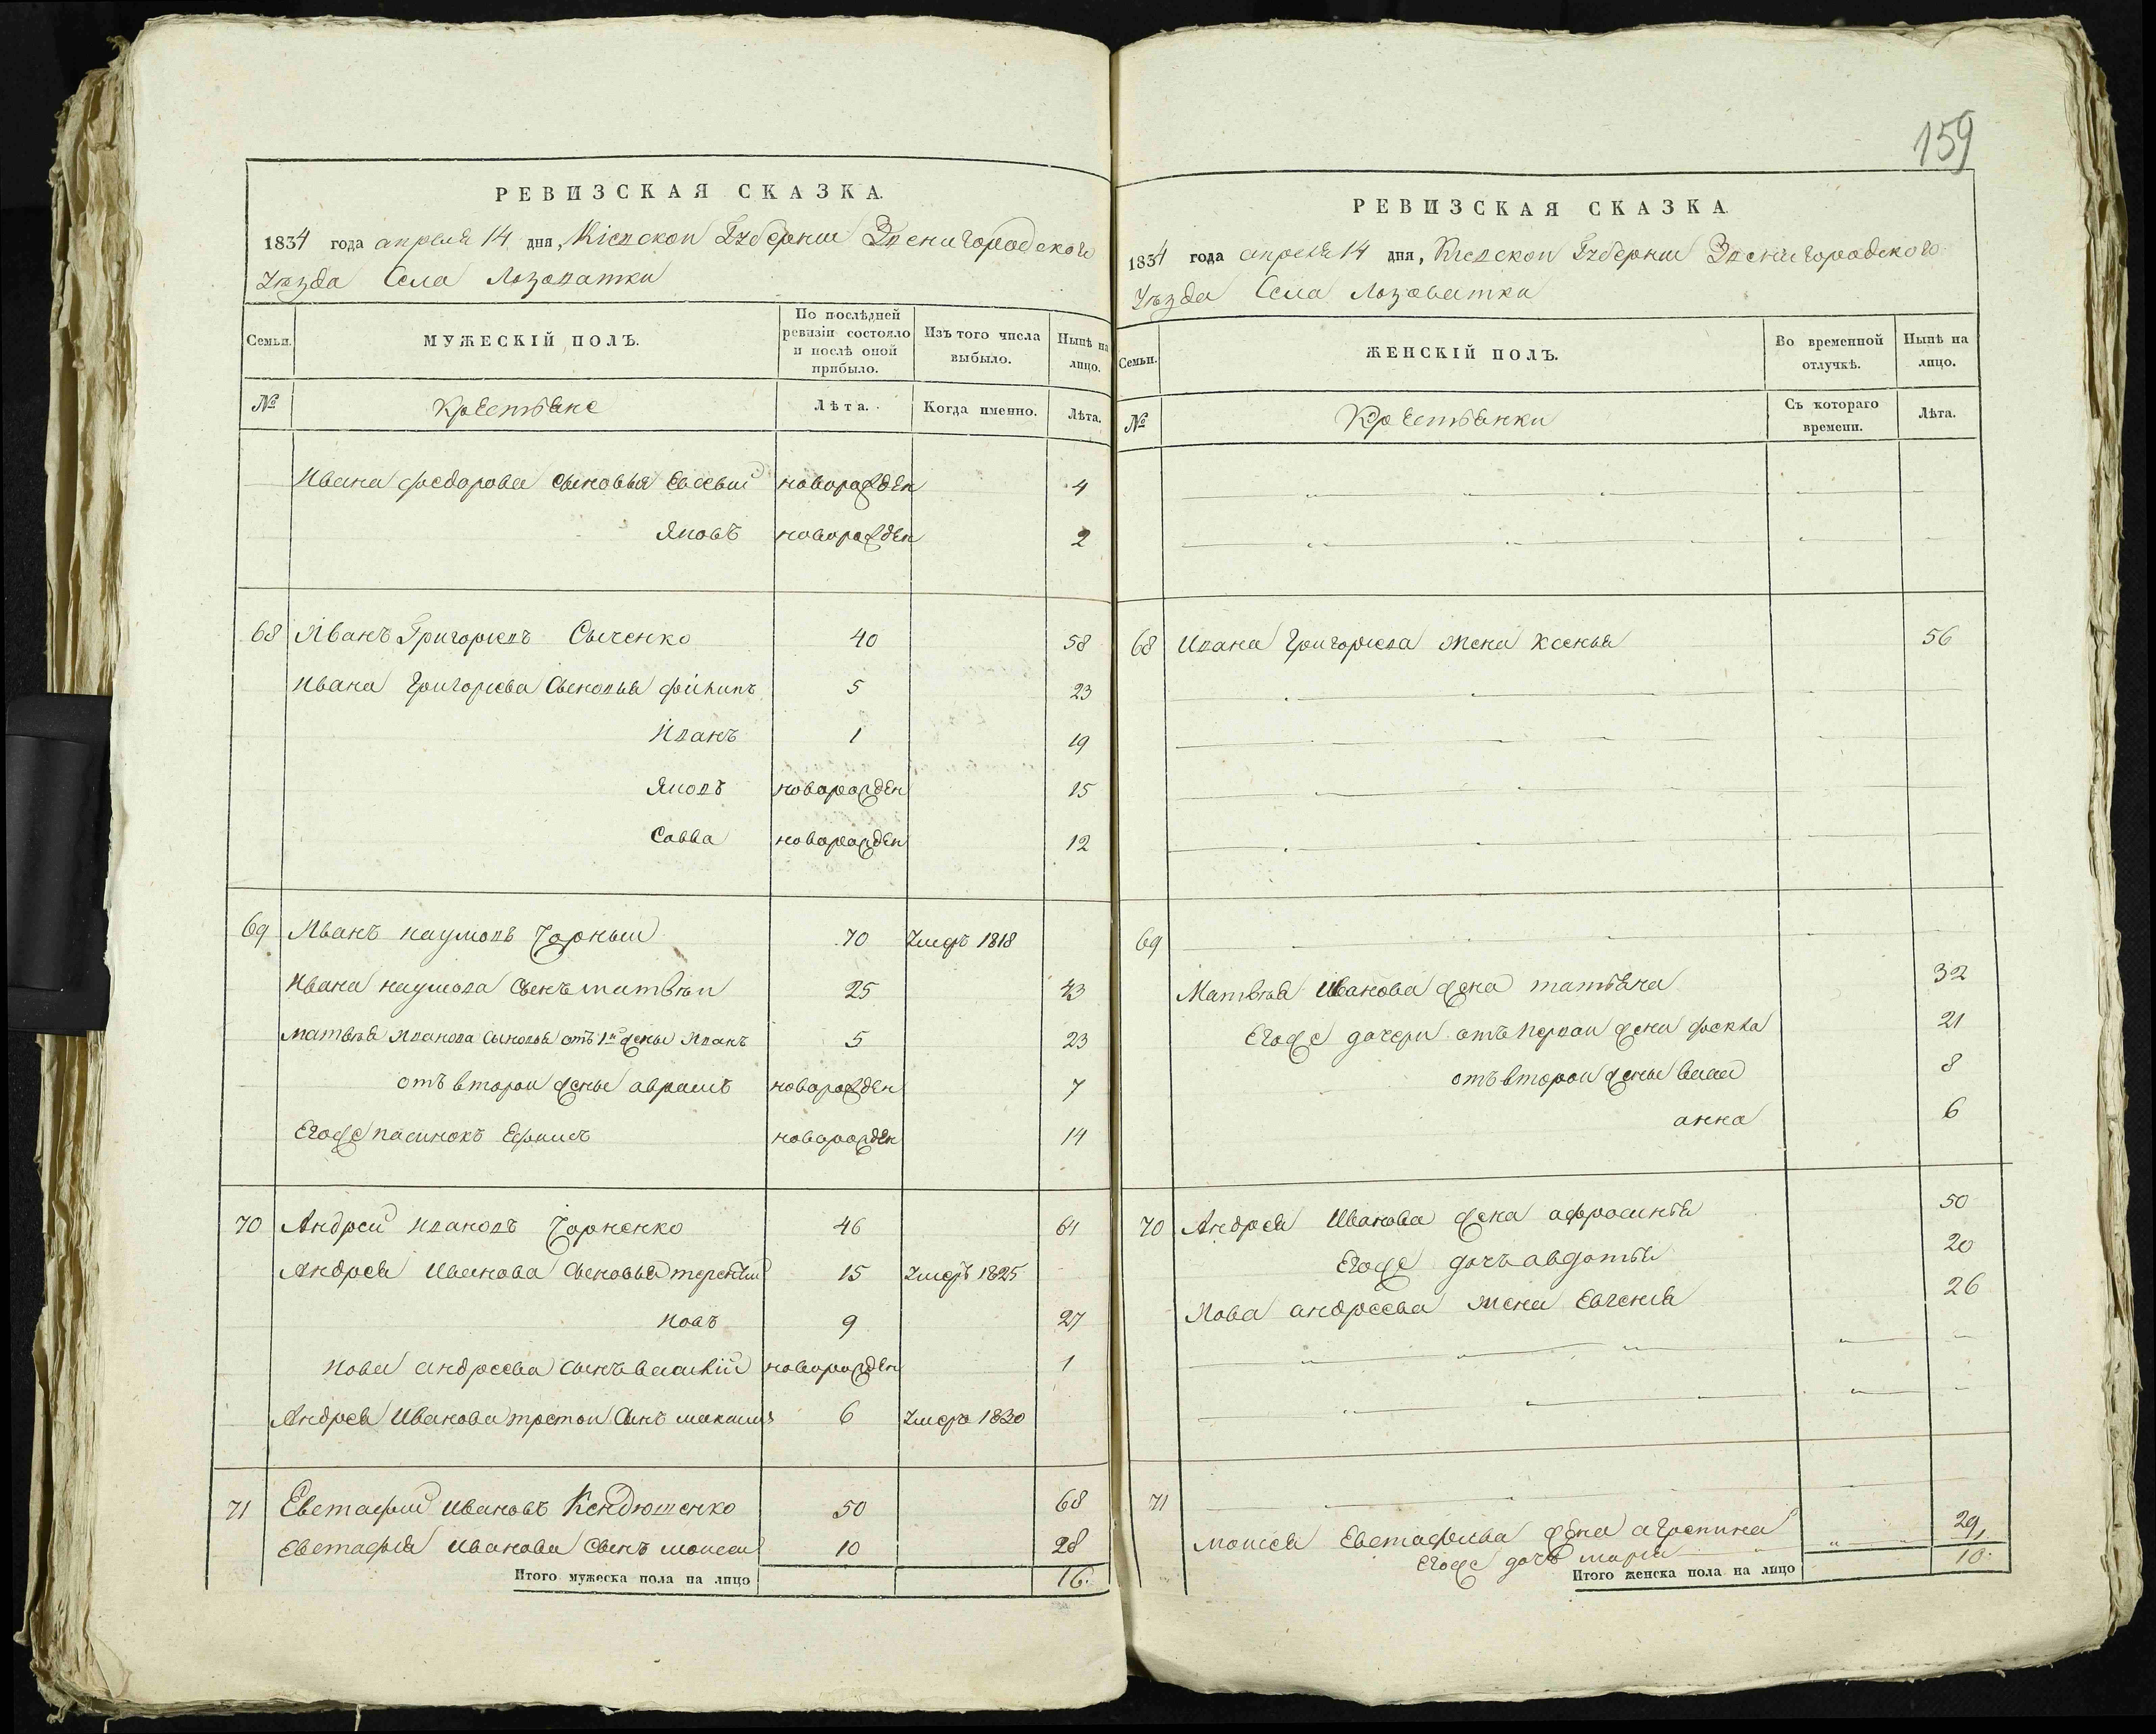 РЕВИЗСКАЯ СКАЗКА.
1834 года апреля 14 дня, Кіевской Губерніи Звенигородского
Уезда Села Лозоватки
Семьи.
МУЖЕСКІЙ ПОЛЪ.
По послѣдней ревизіи состояло и послѣ оной прибыло.
Изъ того числа выбыло.
Нынѣ на лицо.
№
Крестьяне
Лѣта.
Когда именно.
Лѣта.
Ивана федорова сыновья Евсевий новорожден 4
Яковъ новорожден 2
68 Иванъ Григориевъ Сыченко 40 58
Ивана Григориева Сыновья филипъ 5 23
Иванъ 1 19
Яковъ новорожден 15
Савва новорожден 12
69 Иванъ наумовъ Чорный 70 Умеръ 1818
Ивана наумова Сынъ матвѣй 25 43
матвѣя Иванова Сыновья отъ 1й жены Иванъ 5 23
отъ второй жены аврамъ новорожден 7
Егоже пасинокъ Ефимъ новорожден 14
70 Андрей ивановъ Чорненко 46 64
Андрея Иванова Сыновья терентий 15 Умеръ 1825
иовъ 9 27
иова андреева сынъ василий новорожден 1
Андрея Иванова третой Сынъ максимъ 6 Умеръ 1830
71 Евстафий Ивановъ Кендюшенко 50 68
Евстафия Иванова Сынъ моисей 10 28
Итого мужеска пола на лицо 16.
159
РЕВИЗСКАЯ СКАЗКА
1834 года апреля 14 дня, Киевской Губернии Звенигородского
Уезда Села Лозоватки
Семьи.
ЖЕНСКІЙ ПОЛЪ.
Во временной отлучкѣ.
Нынѣ на лицо.
№
Крестьянки
Съ котораго времени.
Лѣта.
68 Ивана Григориева жена Ксенья 56
69
Матвѣя Иванова жена татьяна 32
Егоже дочери отъ первой жены фекла 21
отъ второй жены 8
анна 6
70 Андрея Иванова жена афросинья 50
Егоже дочъ авдотья 20
Иова андреева жена Евгения 26
71
моисея Евстафиева жена агрепина 29
Егоже дочъ мария
Итого женска пола на лицо 10.